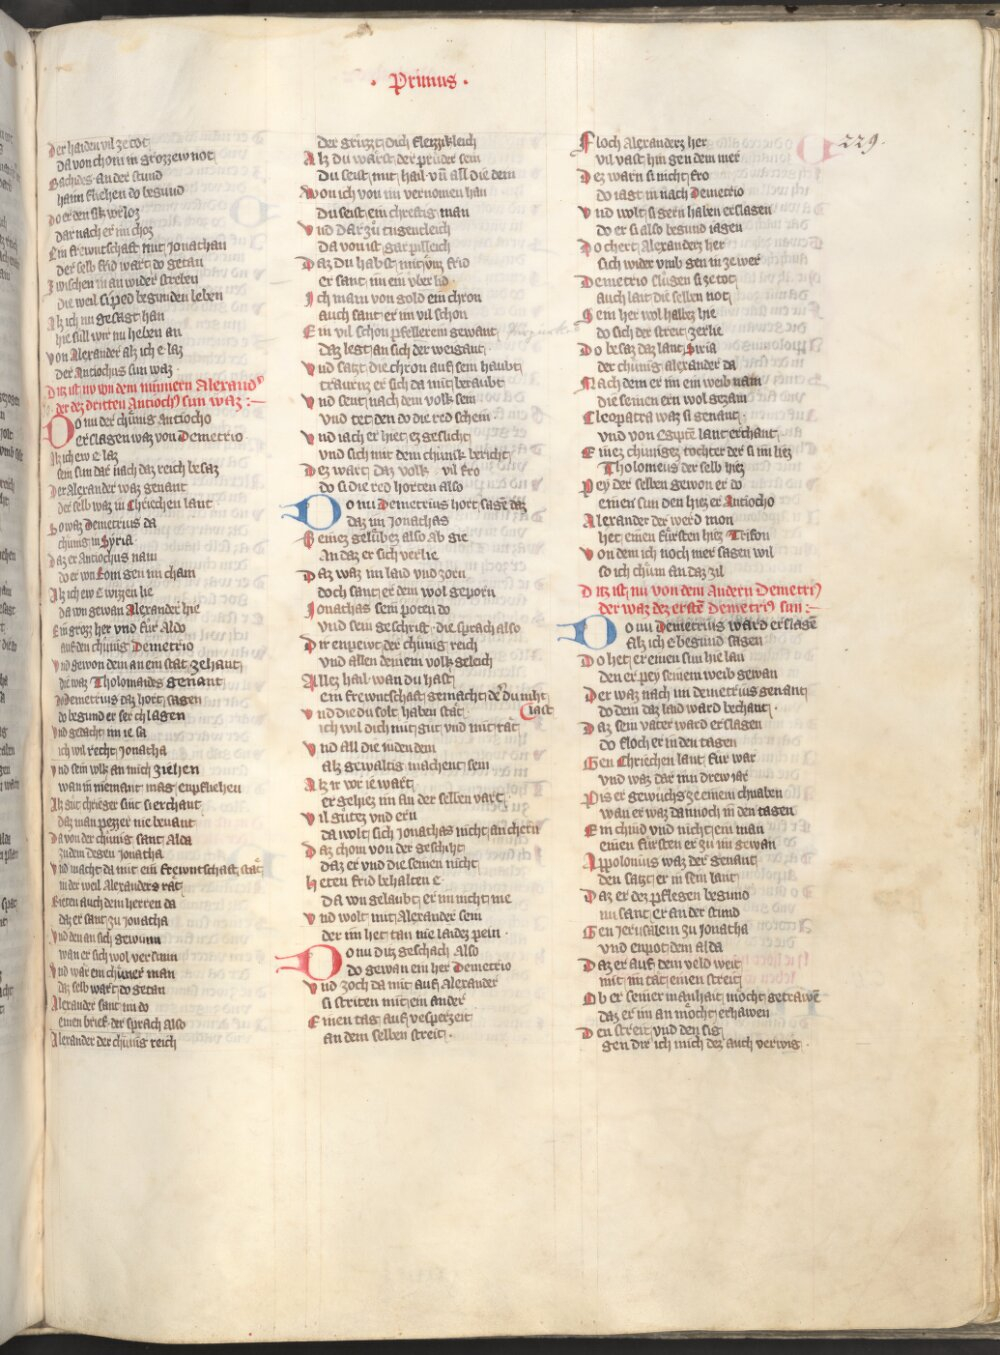 · Primus ·
229.
Der haiden vil ze tot
Da von chom in grozzew not
Bachides an der stund
hann fliehen do begund
Do er den sik verloz
dar nach er im choz
Ein frewntschaft mit Jonathan
Der selb frid wart do getan
Zwischen in an wider streben
Die weil si ped begunden leben
Alz ich nu gesagt han
hie süll wir nu heben an
Von Alexander alz ich e laz
Der Antiochus sun waz
Ditz ist nu von dem Alexand
der dez dritten Antiochy sun waz :-
Do nu der chünig Antiocho
erslagen waz von Demetrio
Alz ich ew e laz
sein sun dar nach daz reich besaz
Der Alexander waz genant
der selb waz in Chriechen lant
Do waz Demetrius da
chünig in Syria
Daz er Antiochus nam
do er von Rom gen im cham
Alz ich ew e wizzen lie
da von gewan Alexander hie
Ein grozz her vnd für Aldo
auf den chünig Demetrio
Vnd gewon dem an ein stat zehant
die waz Tholomaides genant
do Demetrius daz hort sagen
do begund er ser chlagen
Vnd gedacht im ie sa
ich wil recht Jonatha
Vnd sein volk an mich ziehen
wan in niemant mag enpfliehen
Alz gut chrieger sint si erchant
daz man pezzer nie bevant
Da von der chünig sant Alda
zu dem degen Jonatha
Vnd macht da mit ein frewntschaft stät
in der weil Alexanders rät
Rieten auch dem herren da
daz er sant zu Jonatha
Vnd den an sich gewunn
wan er sich wol versunn
Vnd war ein chüner man
daz selb wart do getan
Alexander sant im do
einen brief der sprach also
Alexander der chünig reich
der grüzzt dich fleizzikleich
Alz du wärst der prüder sein
Du seist mit hail vñ all die dein
Won ich von im vernomen han
Du seist ein chreftig man
Vnd dar zü tugentleich
Da von ist gar pilleich
Daz du habst mit im frid
er sant im ein über lid
Ich main von gold ein chron
auch sant er im vil schon
Ein vil schon pfellerein gewant
daz legt an sich der weigant
Vnd satzt die chron auf sein haubt
traurnz er sich da mit beraubt
Vnd sent nach dem volk sein
vnd tet den do die red schein
Vnd iach er hiet ez gesucht
vnd sich mit dem chünik bericht
Dez wart daz volk vil fro
do si die red horten also
Do nu Demetrius hort sagē daz
daz im Jonathas
Seinez gelübez also ab gie
An daz er sich verlie
Daz waz im laid vnd zorn
doch sant er dem wol geporn
Jonathas sein poten do
vnd sein geschrift die sprach also
Dir enpewt der chünig reich
vnd allen deinem volk geleich
Allez hail wan du hast
ein frewntschaft gemacht der du niht
last
Vnd die du solt haben stät
ich wil dich mit gut vnd mit rät
Vnd all die iuden dein
alz gewaltig machent sein
Alz ir vor ie wart
er gehiez im an der selben vart
Vil gütez vnd ern
da wolt sich Jonathas nicht an chern
Daz chom von der geschiht
daz er vnd die seinen nicht
Heten frid behalten e
da von gelaubt er im nicht me
Vnd wolt mit Alexander sein
der im het tan nie laidez pein ·
Do nu ditz geschach Also
do gewan ein her Demetrio
Vnd zoch da mit auf Alexander
si striten mit ein ander
Einen tag auf vesperzeit
an dem selben streit ·
Floch Alexanders her
vil vast hin gen dem mer
Dez warn si nicht fro
do iagt in nach Demetrio
Vnd wolt si gern haben erslagen
do er si also begund iagen
Do chert Alexanders her
sich wider vmb gen in ze wer
Demetrio slügen si ze tot
auch lait die selben not
Sein her wol halbez hie
do sich der streit zerlie
Do besaz daz lant Syria
der chünig alexander da
Nach dem er im ein weib nam
die seinen ern wol gezam
Cleopatra waz si genant ·
vnd von Egiptē lant erchant
Einez chünigez tochter der si im liez
Tholomeus der selb hiez
Pey der selben gewon er do
einen sun den hiez er Antiocho
Alexander der werd mon
het einen fürsten hiez Trifon
Von dem ich noch mer sagen wil
so ich chüm an daz zil
Ditz ist nu von dem Andern Demetriᵒ
der waz dez erstē Demetriᵒ sun :-
Do nu Demetrius ward erslagē
Alz ich e begund sagen
Do het er einen sun hie lan
den er pey seinem weib gewan
Der waz nach im demetrius genant
do dem daz laid ward bechant ·
Daz sein vater ward erslagen
do floch er in den tagen
Gen Chriechen lant für war
vnd waz dar inn drew iar
Pis er gewüchs ze einem chnaben
wan er waz dannoch in den tagen
Ein chind vnd nicht ein man
einen fürsten er zu im gewan
Appolonius waz der genant
den satzt er in sein lant
Daz er dez pflegen begund
nu sant er an der stund
Gen Jerusalem zu Jonatha
vnd enpot dem alda
Daz er auf dem veld weit
mit im tät einen streit
Ob er seiner manhait möcht getrawē
daz er im an möcht erhawen
Den streit vnd den sig
gen dir ich mich dez auch verwig